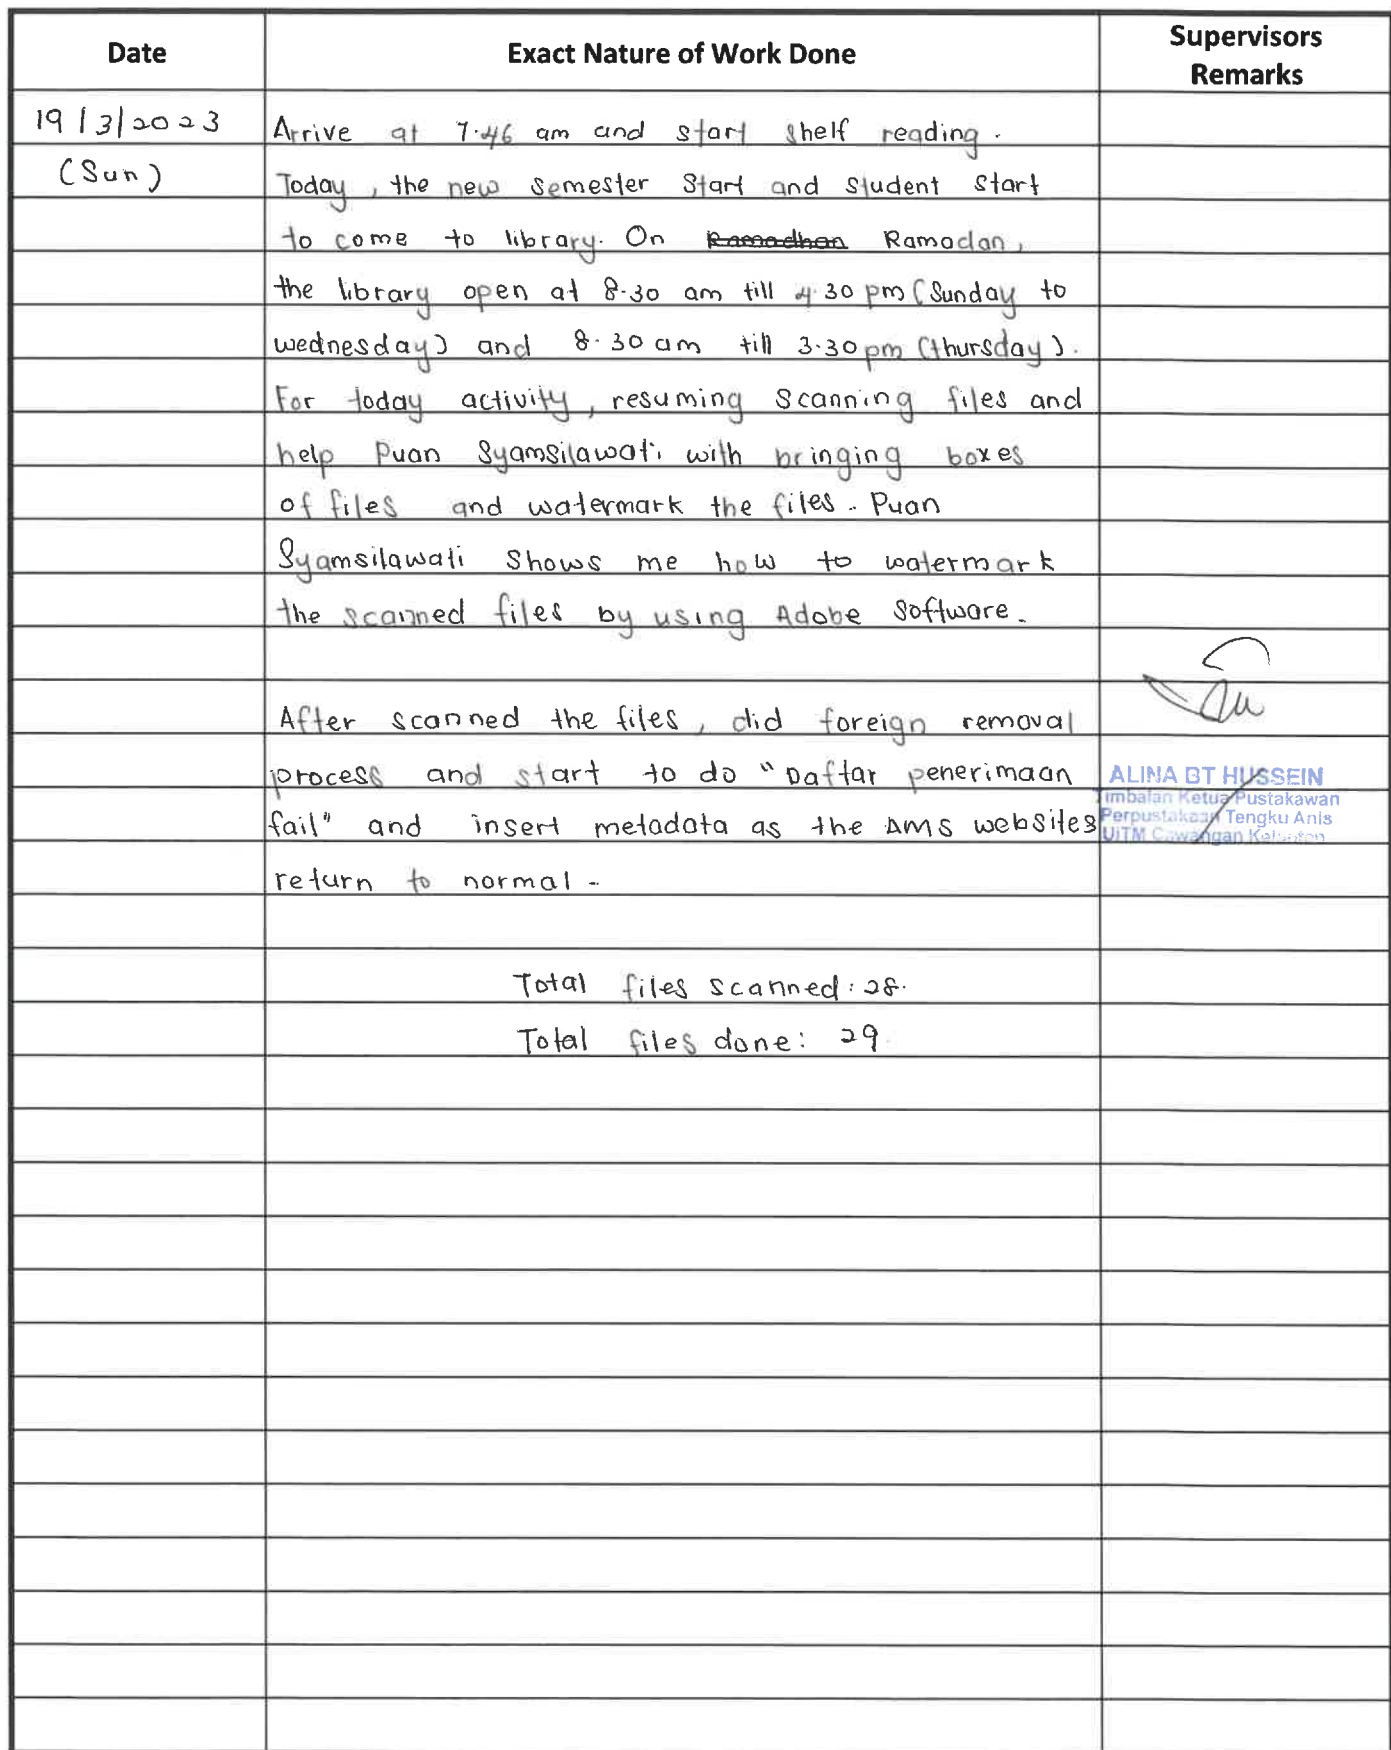 Date
Exact Nature of Work Done
Supervisors
Remarks
19/3/2023
(Sun)
Arrive at 7.46 am and start shelf reading.
Today, the new semester start and student start
to come to library. On Ramadhan Ramadan,
the library open at 8.30 am till 4.30 pm (Sunday to
wednesday) and 8.30 am till 3.30 pm (thursday).
For today activity, resuming scanning files and
help Puan Syamsilawati with bringing boxes
of files and watermark the files. Puan
Syamsilawati shows me how to watermark
the scanned files by using Adobe Software.
After scanned the files, did foreign removal
process and start to do "Daftar penerimaan
fail" and insert metadata as the AMS websites
return to normal.
ALINA BT HUSSEIN
Timbalan Ketua Pustakawan
Perpustakaan Tengku Anis
UiTM Cawangan Kelantan
Total files scanned: 28.
Total files done: 29.